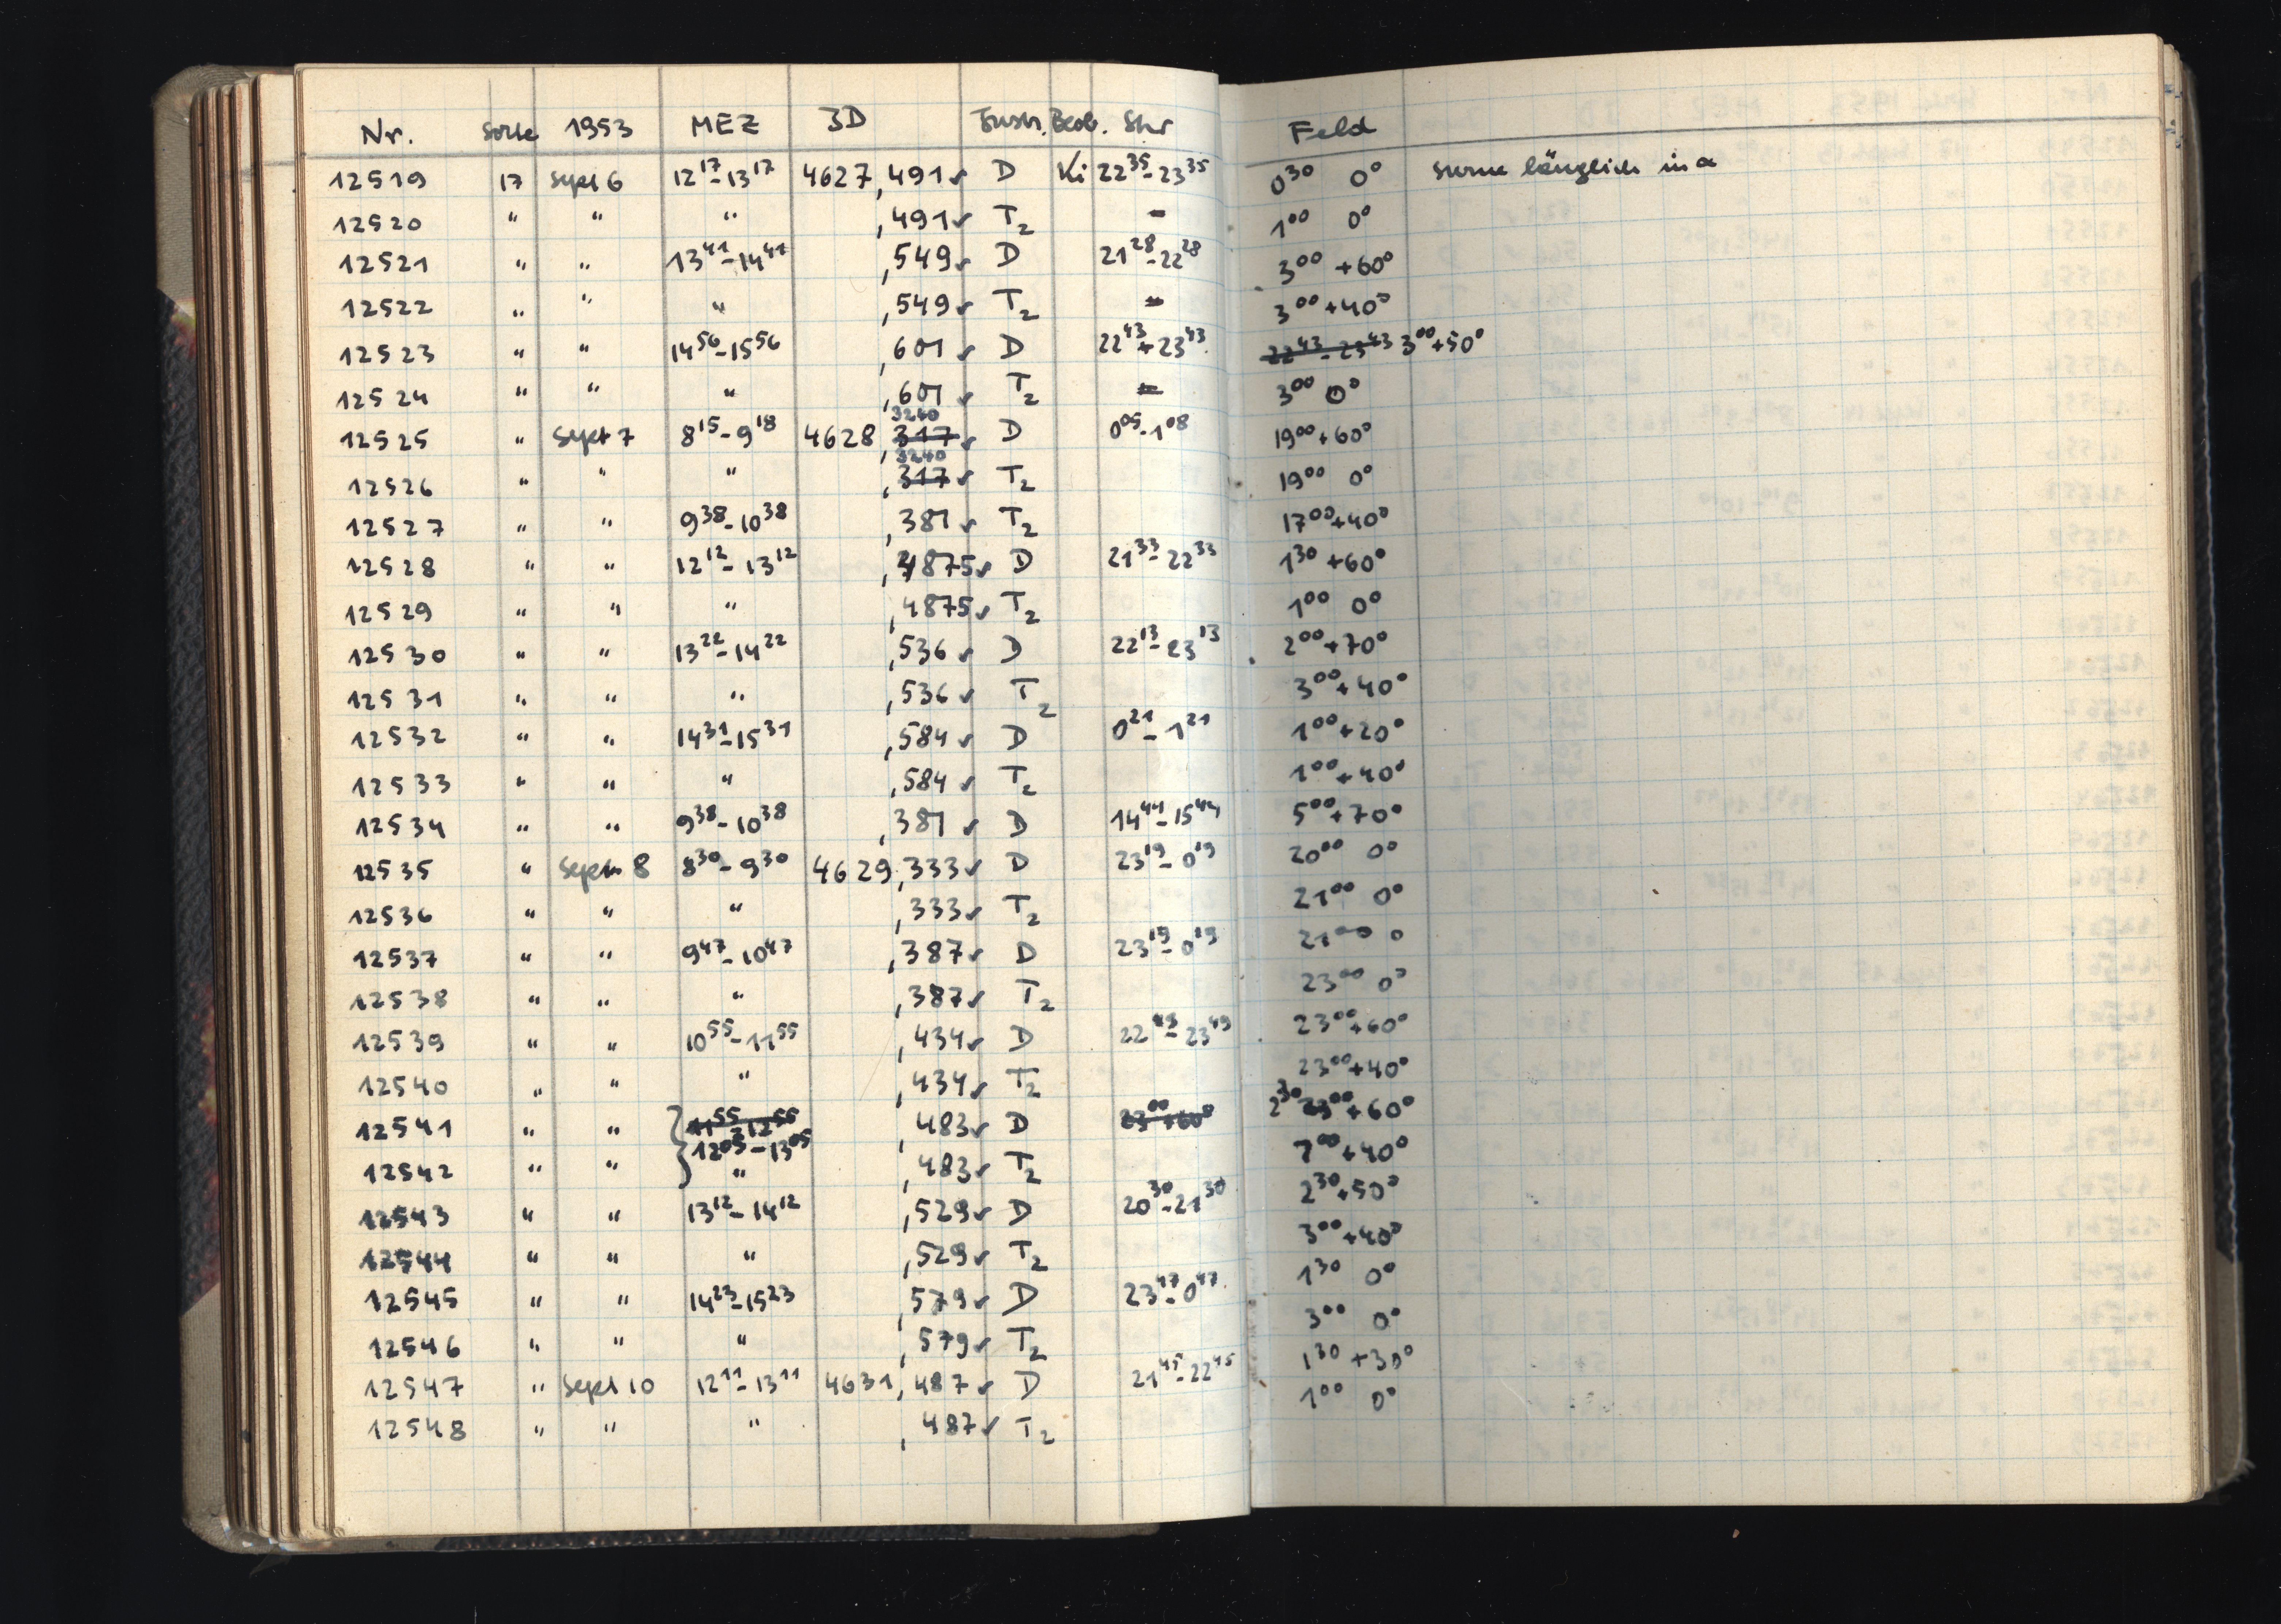 Nr. Sorte 1953 MEZ JD Instr. Beob. Stw Feld
12519 17 Sept 6 12¹⁷-13¹⁷ 4627,491✓ D Ki 22³⁵-23³⁵ 0³⁰ 0° Sterne länglich in α
12520 " " " ,491✓ T₂ - 1⁰⁰ 0°
12521 " " 13⁴¹-14⁴¹ ,549✓ D 21²⁸-22²⁸ 3⁰⁰ +60°
12522 " " " ,549✓ T₂ - 3⁰⁰+40°
12523 " " 14⁵⁶-15⁵⁶ ,601✓ D 22⁴³-23⁴³ 22⁴³-23⁴³ 3⁰⁰+50°
12524 " " " ,601✓ T₂ - 3⁰⁰ 0°
12525 " Sept 7 8¹⁵-9¹⁸ 4628,317 3240✓ D 0⁰⁵-1⁰⁸ 19⁰⁰+60°
12526 " " " ,317 3240✓ T₂ 19⁰⁰ 0°
12527 " " 9³⁸-10³⁸ ,381✓ T₂ 17⁰⁰+40°
12528 " " 12¹²-13¹² ,4875✓ D 21³³-22³³ 1³⁰+60°
12529 " " " ,4875✓ T₂ 1⁰⁰ 0°
12530 " " 13²²-14²² ,536✓ D 22¹³-23¹³ 2⁰⁰+70°
12531 " " " ,536✓ T₂ 3⁰⁰+40°
12532 " " 14³¹-15³¹ ,584✓ D 0²¹-1²¹ 1⁰⁰+20°
12533 " " " ,584✓ T₂ 1⁰⁰+40°
12534 " " 9³⁸-10³⁸ ,381✓ D 14⁴⁴-15⁴⁴ 5⁰⁰+70°
12535 " Sept 8 8³⁰-9³⁰ 4629,333✓ D 23¹⁹-0¹⁹ 20⁰⁰ 0°
12536 " " " ,333✓ T₂ 21⁰⁰ 0°
12537 " " 9⁴⁷-10⁴⁷ ,387✓ D 23¹⁹-0¹⁹ 21⁰⁰ 0
12538 " " " ,387✓ T₂ 23⁰⁰ 0°
12539 " " 10⁵⁵-11⁵⁵ ,434✓ D 22⁴⁹-23⁴⁹ 23⁰⁰+60°
12540 " " " ,434✓ T₂ 23⁰⁰+40°
12541 " " 11⁵⁵-12⁵⁵ 12⁰⁵-13⁰⁵ ,483✓ D 23⁰⁰+60° 2³⁰ 23⁰⁰+60°
12542 " " " ,483✓ T₂ 2⁰⁰+40°
12543 " " 13¹²-14¹² ,529✓ D 20³⁰-21³⁰ 2³⁰+50°
12544 " " " ,529✓ T₂ 3⁰⁰+40°
12545 " " 14²³-15²³ ,579✓ D 23⁴⁷-0⁴⁷ 1³⁰ 0°
12546 " " " ,579✓ T₂ 3⁰⁰ 0°
12547 " Sept 10 12¹¹-13¹¹ 4631,487✓ D 21⁴⁵-22⁴⁵ 1³⁰+30°
12548 " " " ,487✓ T₂ 1⁰⁰ 0°